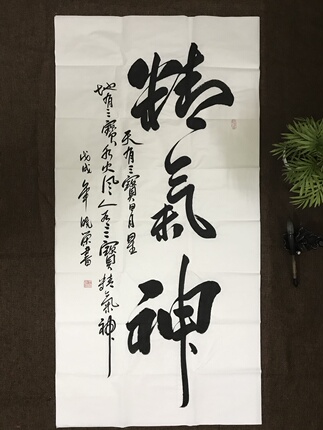 精氣神
天有三寶日月星
地有三寶水火风人有三寶精氣神
戊戌年書